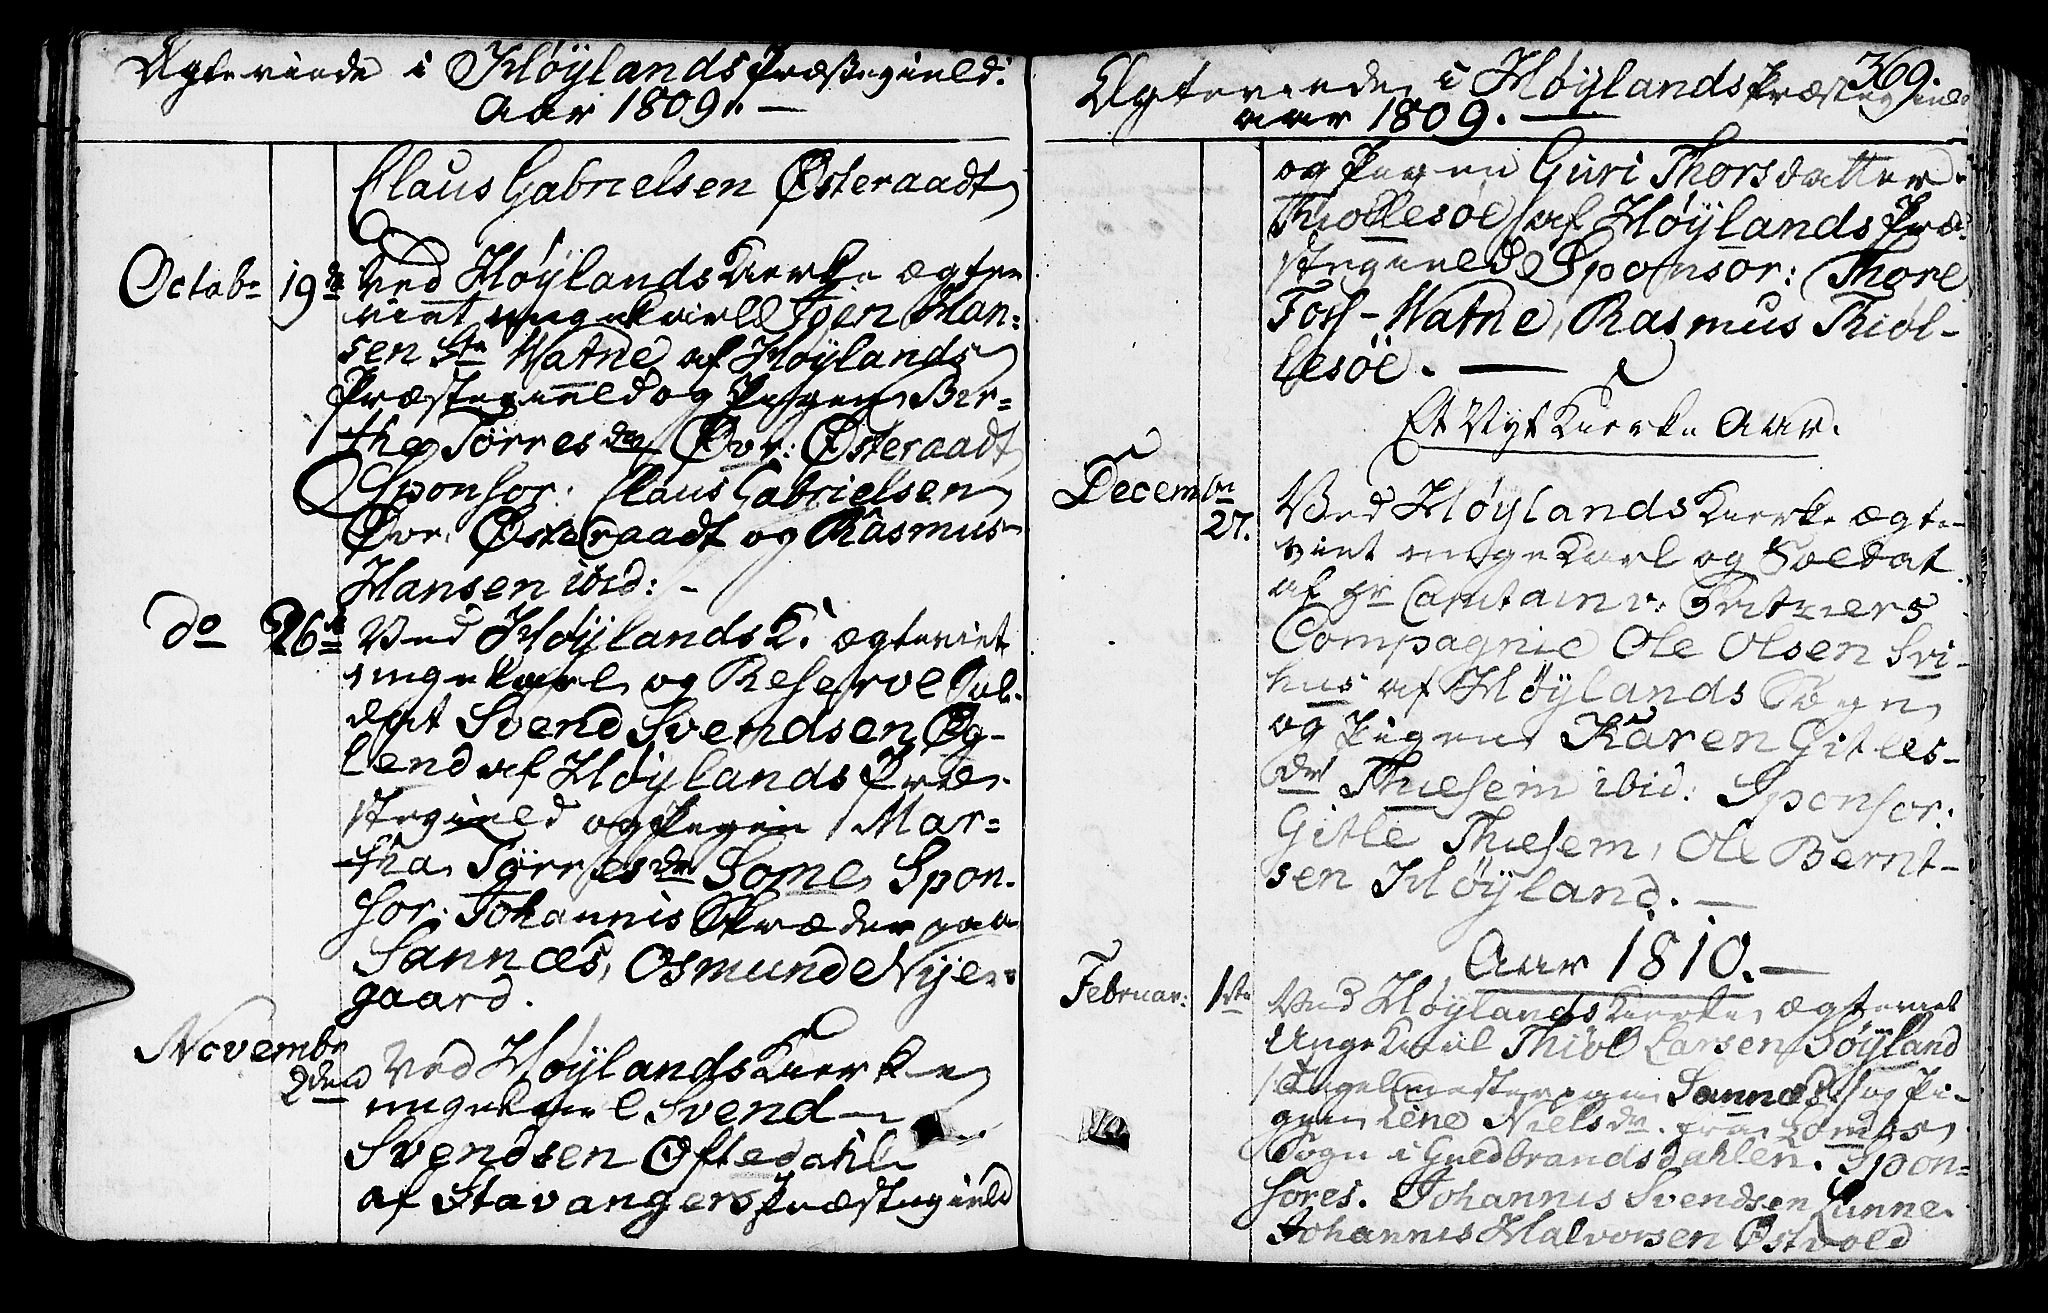 Ægteviede i Høylands Præstegield:
Aar 1809. —
Claus Gabrielsen Østeraadt
Octobr 19de Ved Høylands Kierke ægte
viet ungekarl Iver Han=
sen St. Watne af Høylands
Præstegield og Pigen Ber=
the Törresdr Øvr: Østeraadt
Sponsor: Claus Gabrielsen
Øvr: Østeraadt og Rasmus
Hansen ibid: -
do 26de Ved Høylands K: ægteviet
ungekarl og Reserve Sol-
dat Svend Svendsen Øg-
lend af Høylands Præ-
stegield og Pigen Mar=
tha Törresdr Some, Spon-
sor: Johannis Skræder paa
Sannæs, Osmund Nyje-
gaard.
Novembr
2den Ved Høylands Kierke
ungekarl Svend
Svendsen Øftedahl
af Stavangers Præstegield
Ægteviede i Høylands Præstegield 369.
aar 1809. —
og Pigen Guri Thorsdatter
Thiollesøe af Høylands Præ-
stegield Sponsor: Thore
Foss-Watne, Rasmus Thiöl-
lesöe. —
Et Nyt Kierke Aar.
Decembr
27. Ved Høylands Kierke ægte-
viet ungekarl og Soldat
af Hr Capitain v: Fritzners
Compagnie Ole Olsen Svi-
hus af Høylands Sogn
og Pigen Karen Gitles-
dr Thuesem ibid: Sponsor:
Gitle Thuesem, Ole Bernt-
sen Høyland. —
Aar 1810. —
Februar: 1ste Ved Høylands Kierke ægteviet
Ungekarl Thiöl Larsen Søyland
Teglmester paa Sannæs og Pi-
gen Lene Nielsdr. fra Lombs
Sogn i Guldbrandsdahlen. Spon=
sores. Johannis Svendsen Lunne
Johannis Halvorsen Østvold